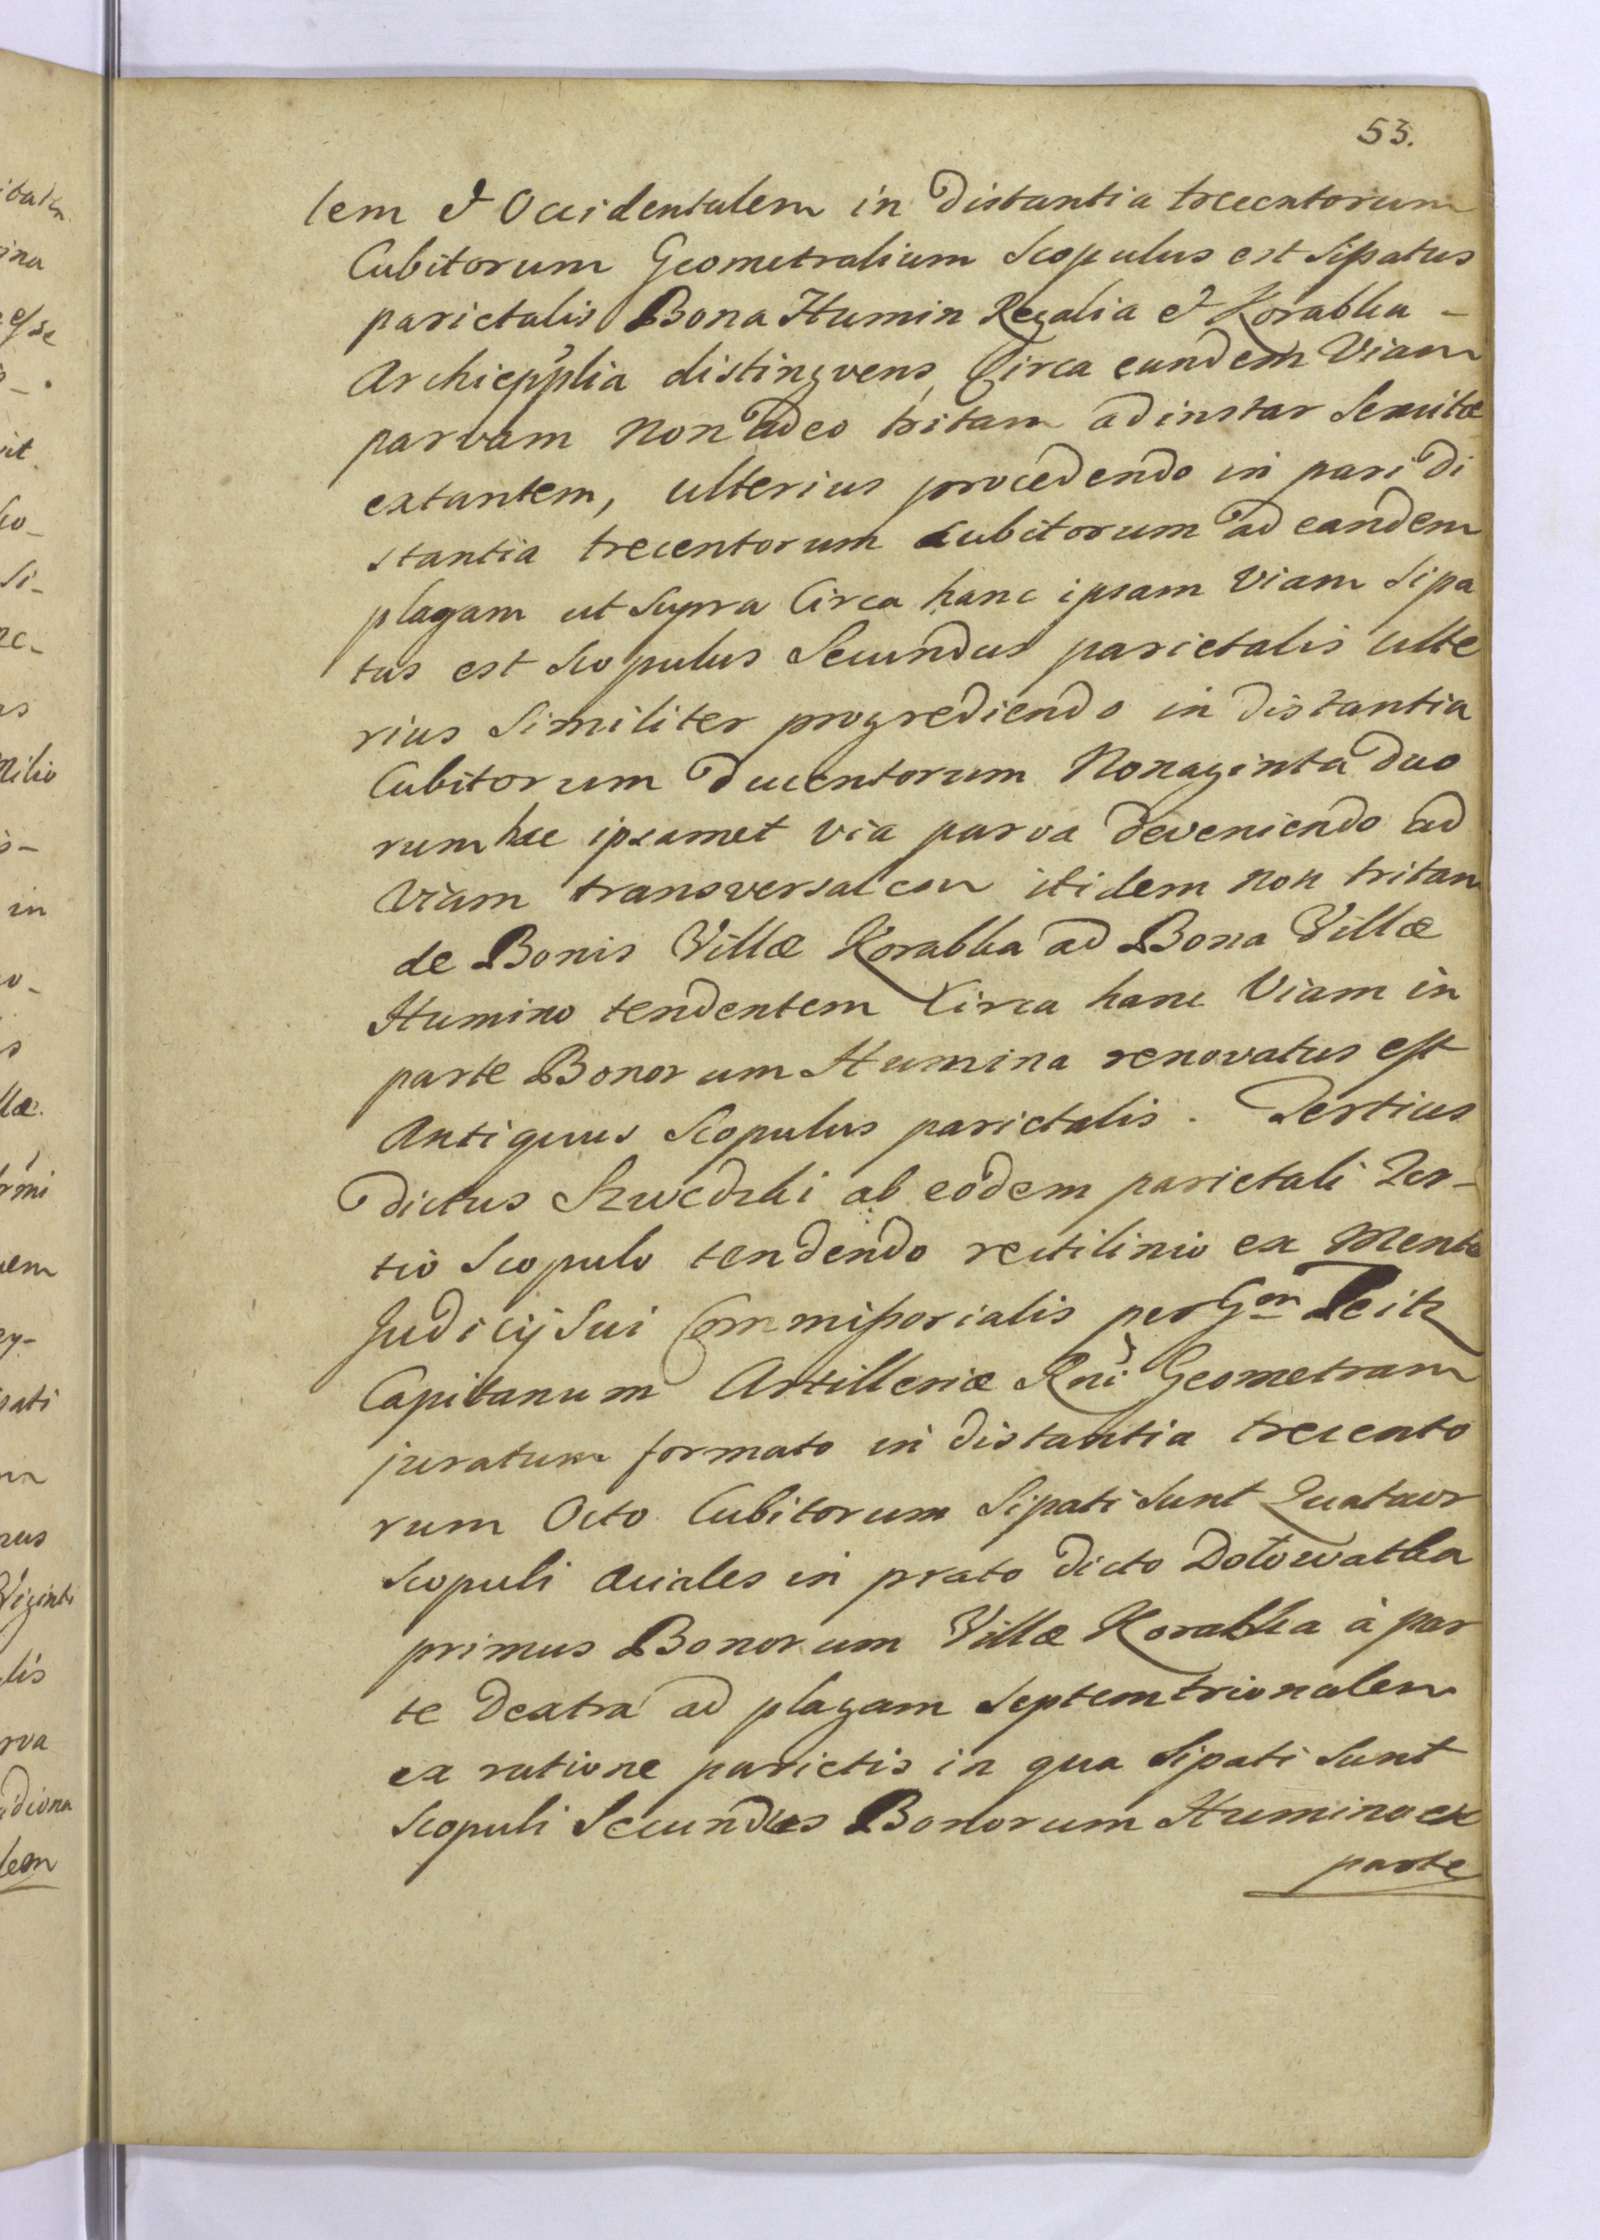 53.
lem & Occidentalem in distantia trecentorum
Cubitorum Geometralium Scopulus est Sipatus
parietalis Bona Humin Regalia & Korabka -
Archiepp̃lia distingvens, Circa eundem Viam
parvam non adeo tritam ad instar Semitæ
extantem, ulterius procedendo in pari di
stantia trecentorum cubitorum ad eandem
plagam ut supra Circa hanc ipsam Viam Sipa
tus est Scopulus Secundus parietalis ulte
rius Similiter progrediendo in distantia
Cubitorum ducentorum Nonaginta duo
rum hac ipsamet via parva deveniendo ad
Viam transversalem itidem non tritam
de Bonis Villæ Korabka ad Bona Villæ
Humino tendentem Circa hanc Viam in
parte Bonorum Humina renovatus est
Antiquus Scopulus parietalis. Tertius
dictus Szwedzki ab eodem parietali Ter-
tio Scopulo tendendo rectilinio ex Mente
Judicij Sui Commissorialis per Gm Zeitz
Capitanum Artilleriæ Rni Geometram
juratum formato in distantia trecento
rum Octo Cubitorum Sipati Sunt Quatuor
Scopuli Aciales in prato dicto Dołowatka
primus Bonorum Villæ Korabka à par
te Dextra ad plagam Septemtrionalem
ex ratione parietis in qua Sipati Sunt
Scopuli Secundus Bonorum Humino ex
parte